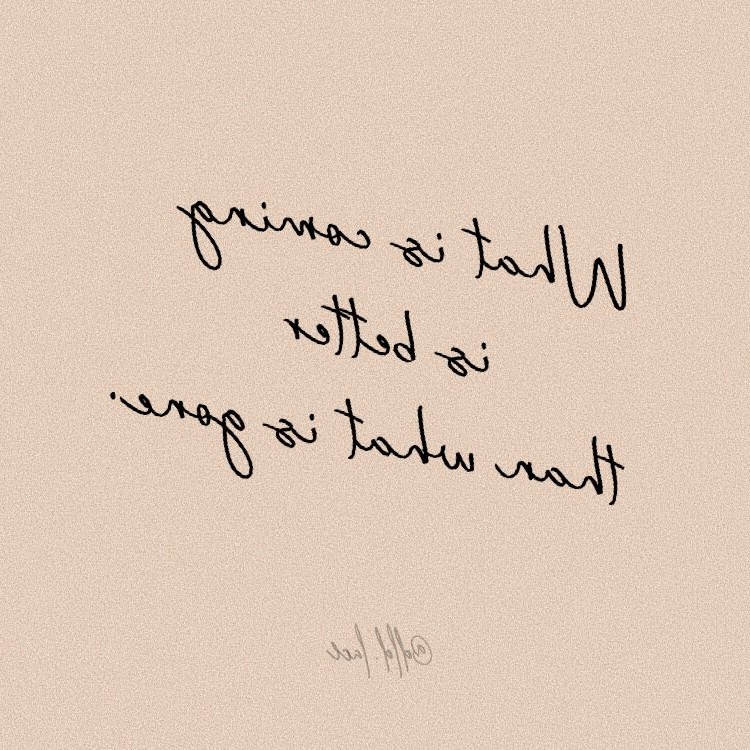 What is coming
is better
than what is gone.